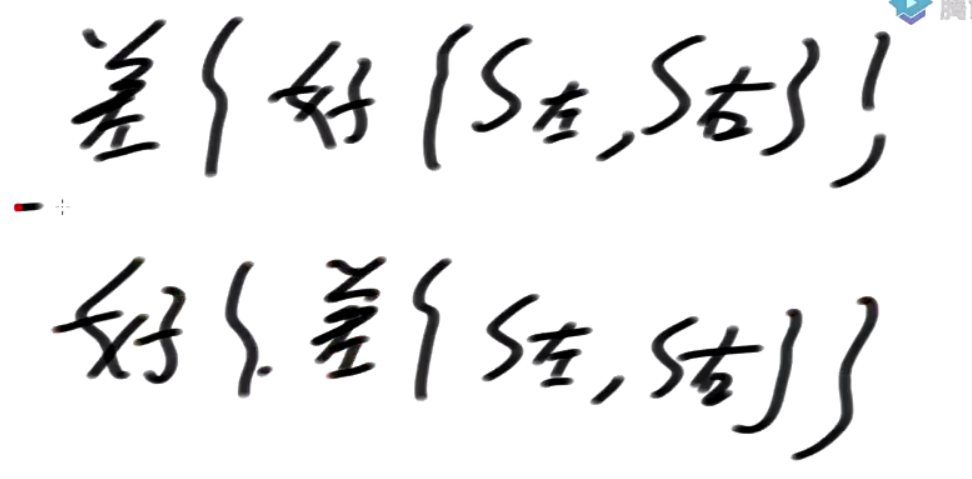 差{好{S左,S右}}
好{差{S左,S右}}